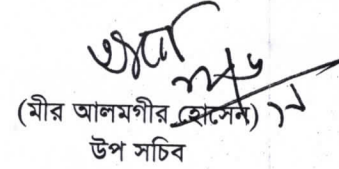 (মীর আলমগীর হোসেন)
উপ সচিব